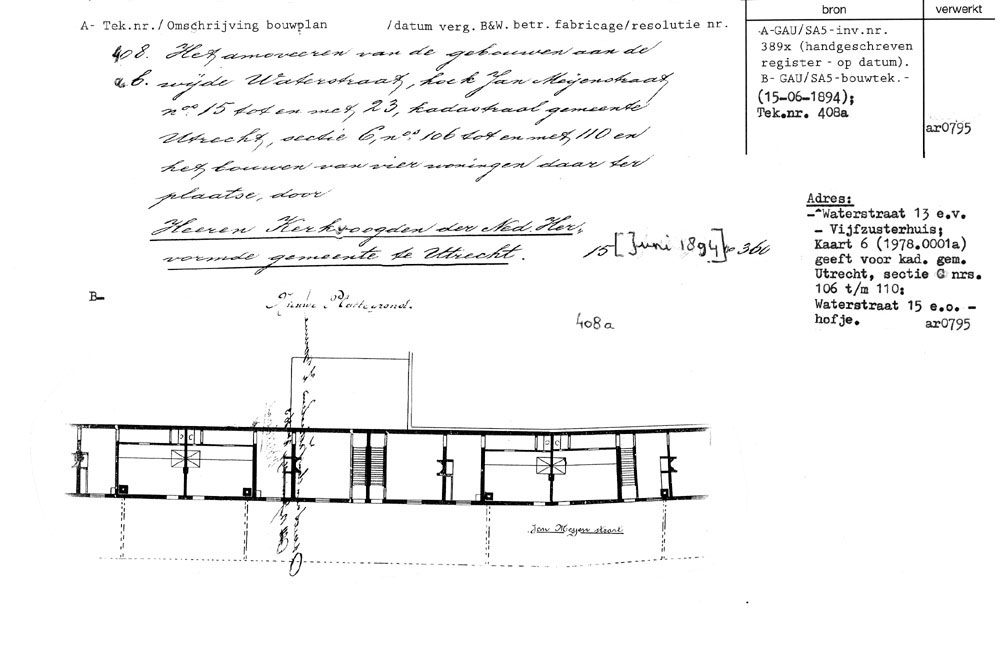 A- Tek.nr./Omschrijving bouwplan /datum verg. B&W. betr. fabricage/resolutie nr.
408. Het amoveeren van de gebouwen aan de
a b. wijde Waterstraat, hoek Jan Meijenstraat
nos 15 tot en met 23, kadastraal gemeente
Utrecht, sectie C, nos 106 tot en met 110 en
het bouwen van vier woningen daar ter
plaatse, door
Heeren Kerkvoogden der Ned. Her-
vormde gemeente te Utrecht.
15 [Juni 1894] 360
bron
verwerkt
A-GAU/SA5-inv.nr.
389x (handgeschreven
register - op datum).
B- GAU/SA5-bouwtek.-
(15-06-1894);
Tek.nr. 408a
ar0795
Adres:
-^Waterstraat 13 e.v.
- Vijfzusterhuis;
Kaart 6 (1978.0001a)
geeft voor kad. gem.
Utrecht, sectie C nrs.
106 t/m 110:
Waterstraat 15 e.o. -
hofje. ar0795
B-
Nieuwe Plattegrond.
408a
Jan Meijen straat